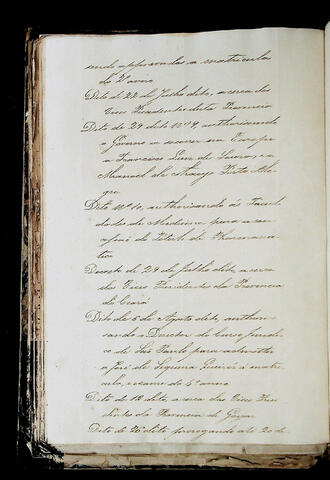 sendo approvadas a matricula
do 2º anno
Dito de 22 de Julho dito, acerca dos
Vices Presidentes desta Provincia
Dito de 29 dito nº 9, authorisando
o Governo a
a Francisco Luiz de e a
Manoel de Araujo Porto Ale
gre
Dito nº 10, authorisando ás Facul
dades de Medicina para a con
de Pharmaceu
tico
Decreto de 29 de Julho dito, acerca
dos Vices Presidentes da Provincia
do Ceará
Dito de 6 de Agosto dito, authori
sando o Director do Curso Juridi
co de São Paulo para admittir
a José de Siqueira Queirós á matri
cula, e exame do 4º anno
Dito de 18 dito, acerca dos Vices Presi
dentes da Provincia de Goyaz
Dito de 26 dito prorogando até 20 de